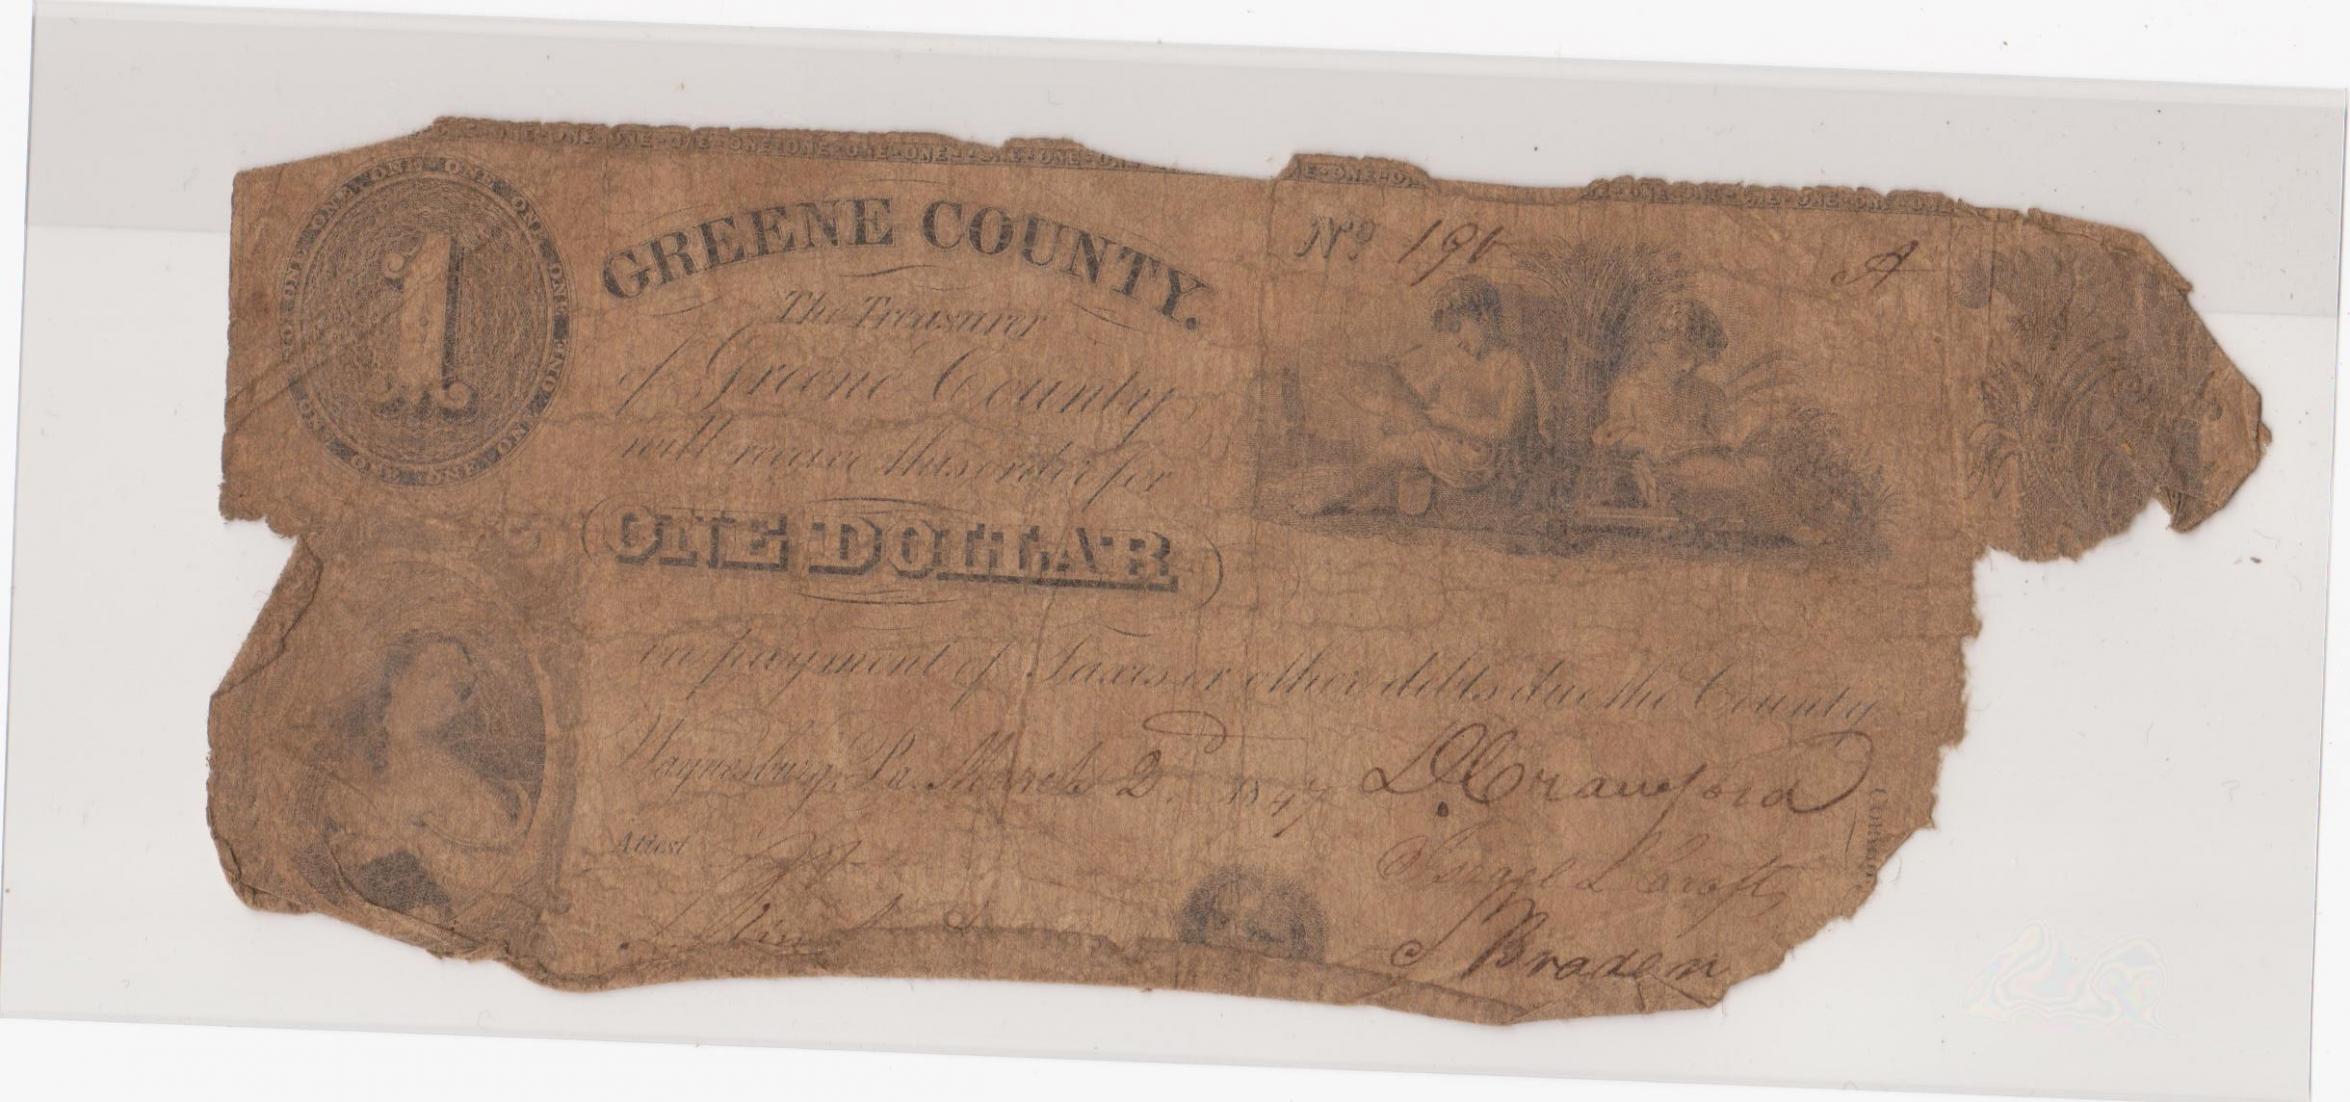 ONE ONE ONE ONE ONE ONE ONE ONE ONE
ONE ONE ONE ONE ONE ONE ONE ONE ONE
1
GREENE COUNTY.
No 191 A
The Treasurer
of Greene County
will receive this order for
ONE DOLLAR
in payment of Taxes or other debts due the County
Waynesburg, Pa. March 2d 1847
D. Crawford
Attest
L Croft
S Braden